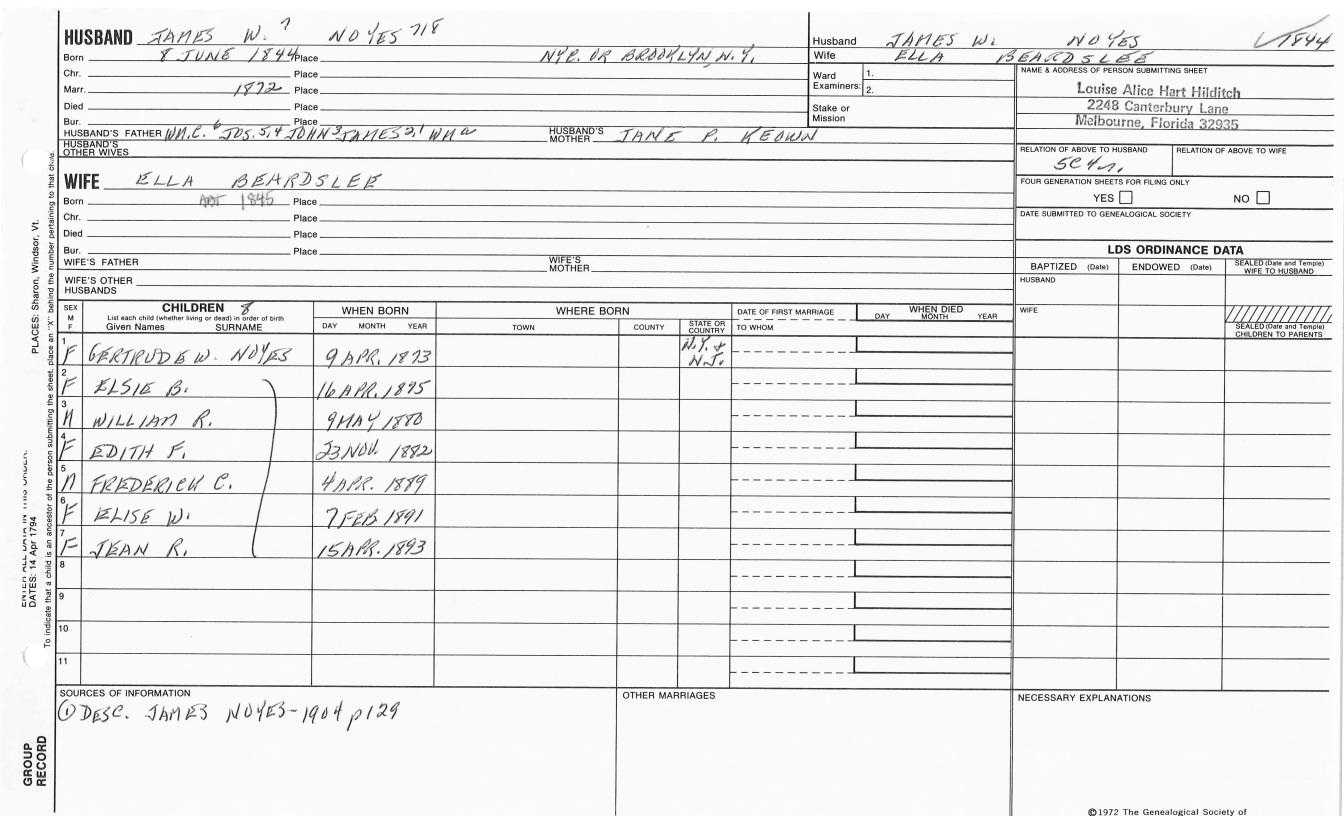 HUSBAND JAMES W. 7 NOYES 718
Born 8 JUNE 1844 Place NYC. OR BROOKLYN N.Y.
Chr. Place
Marr. 1872 Place
Died Place
Bur. Place
HUSBAND'S FATHER WM.C. 6 JOS. 5,4 JOHN 3 JAMES 2,1 WM a HUSBAND'S MOTHER JANE P. KEOWN
HUSBAND'S OTHER WIVES
Husband JAMES W. NOYES 1844
Wife ELLA BEARDSLEE
Ward Examiners: 1.
2.
Stake or Mission
NAME & ADDRESS OF PERSON SUBMITTING SHEET
Louise Alice Hart Hilditch
2248 Canterbury Lane
Melbourne, Florida 32935
RELATION OF ABOVE TO HUSBAND RELATION OF ABOVE TO WIFE
5C4r.
FOUR GENERATION SHEETS FOR FILING ONLY
YES NO
DATE SUBMITTED TO GENEALOGICAL SOCIETY
WIFE ELLA BEARDSLEE
Born ABT 1845 Place
Chr. Place
Died Place
Bur. Place
WIFE'S FATHER WIFE'S MOTHER
WIFE'S OTHER HUSBANDS
LDS ORDINANCE DATA
BAPTIZED (Date) ENDOWED (Date) SEALED (Date and Temple) WIFE TO HUSBAND
HUSBAND
WIFE
SEALED (Date and Temple) CHILDREN TO PARENTS
SEX M F CHILDREN 8 WHEN BORN WHERE BORN DATE OF FIRST MARRIAGE WHEN DIED
List each child (whether living or dead) in order of birth
Given Names SURNAME DAY MONTH YEAR TOWN COUNTY STATE OR COUNTRY TO WHOM DAY MONTH YEAR
1 F GERTRUDE W. NOYES 9 APR. 1873 N.Y. + N.J.
2 F ELSIE B. 16 APR. 1875
3 M WILLIAM R. 9 MAY 1880
4 F EDITH F. 23 NOV. 1882
5 M FREDERICK C. 4 APR. 1889
6 F ELISE W. 7 FEB 1891
7 F JEAN R. 15 APR. 1893
8
9
10
11
SOURCES OF INFORMATION
① DESC. JAMES NOYES-1904 p129
OTHER MARRIAGES
NECESSARY EXPLANATIONS
©1972 The Genealogical Society of
PLACES: Sharon, Windsor, Vt.
ENTER ALL DATA IN THIS ORDER:
DATES: 14 Apr 1794
To indicate that a child is an ancestor of the person submitting the sheet, place an "X" behind the number pertaining to that child.
GROUP RECORD